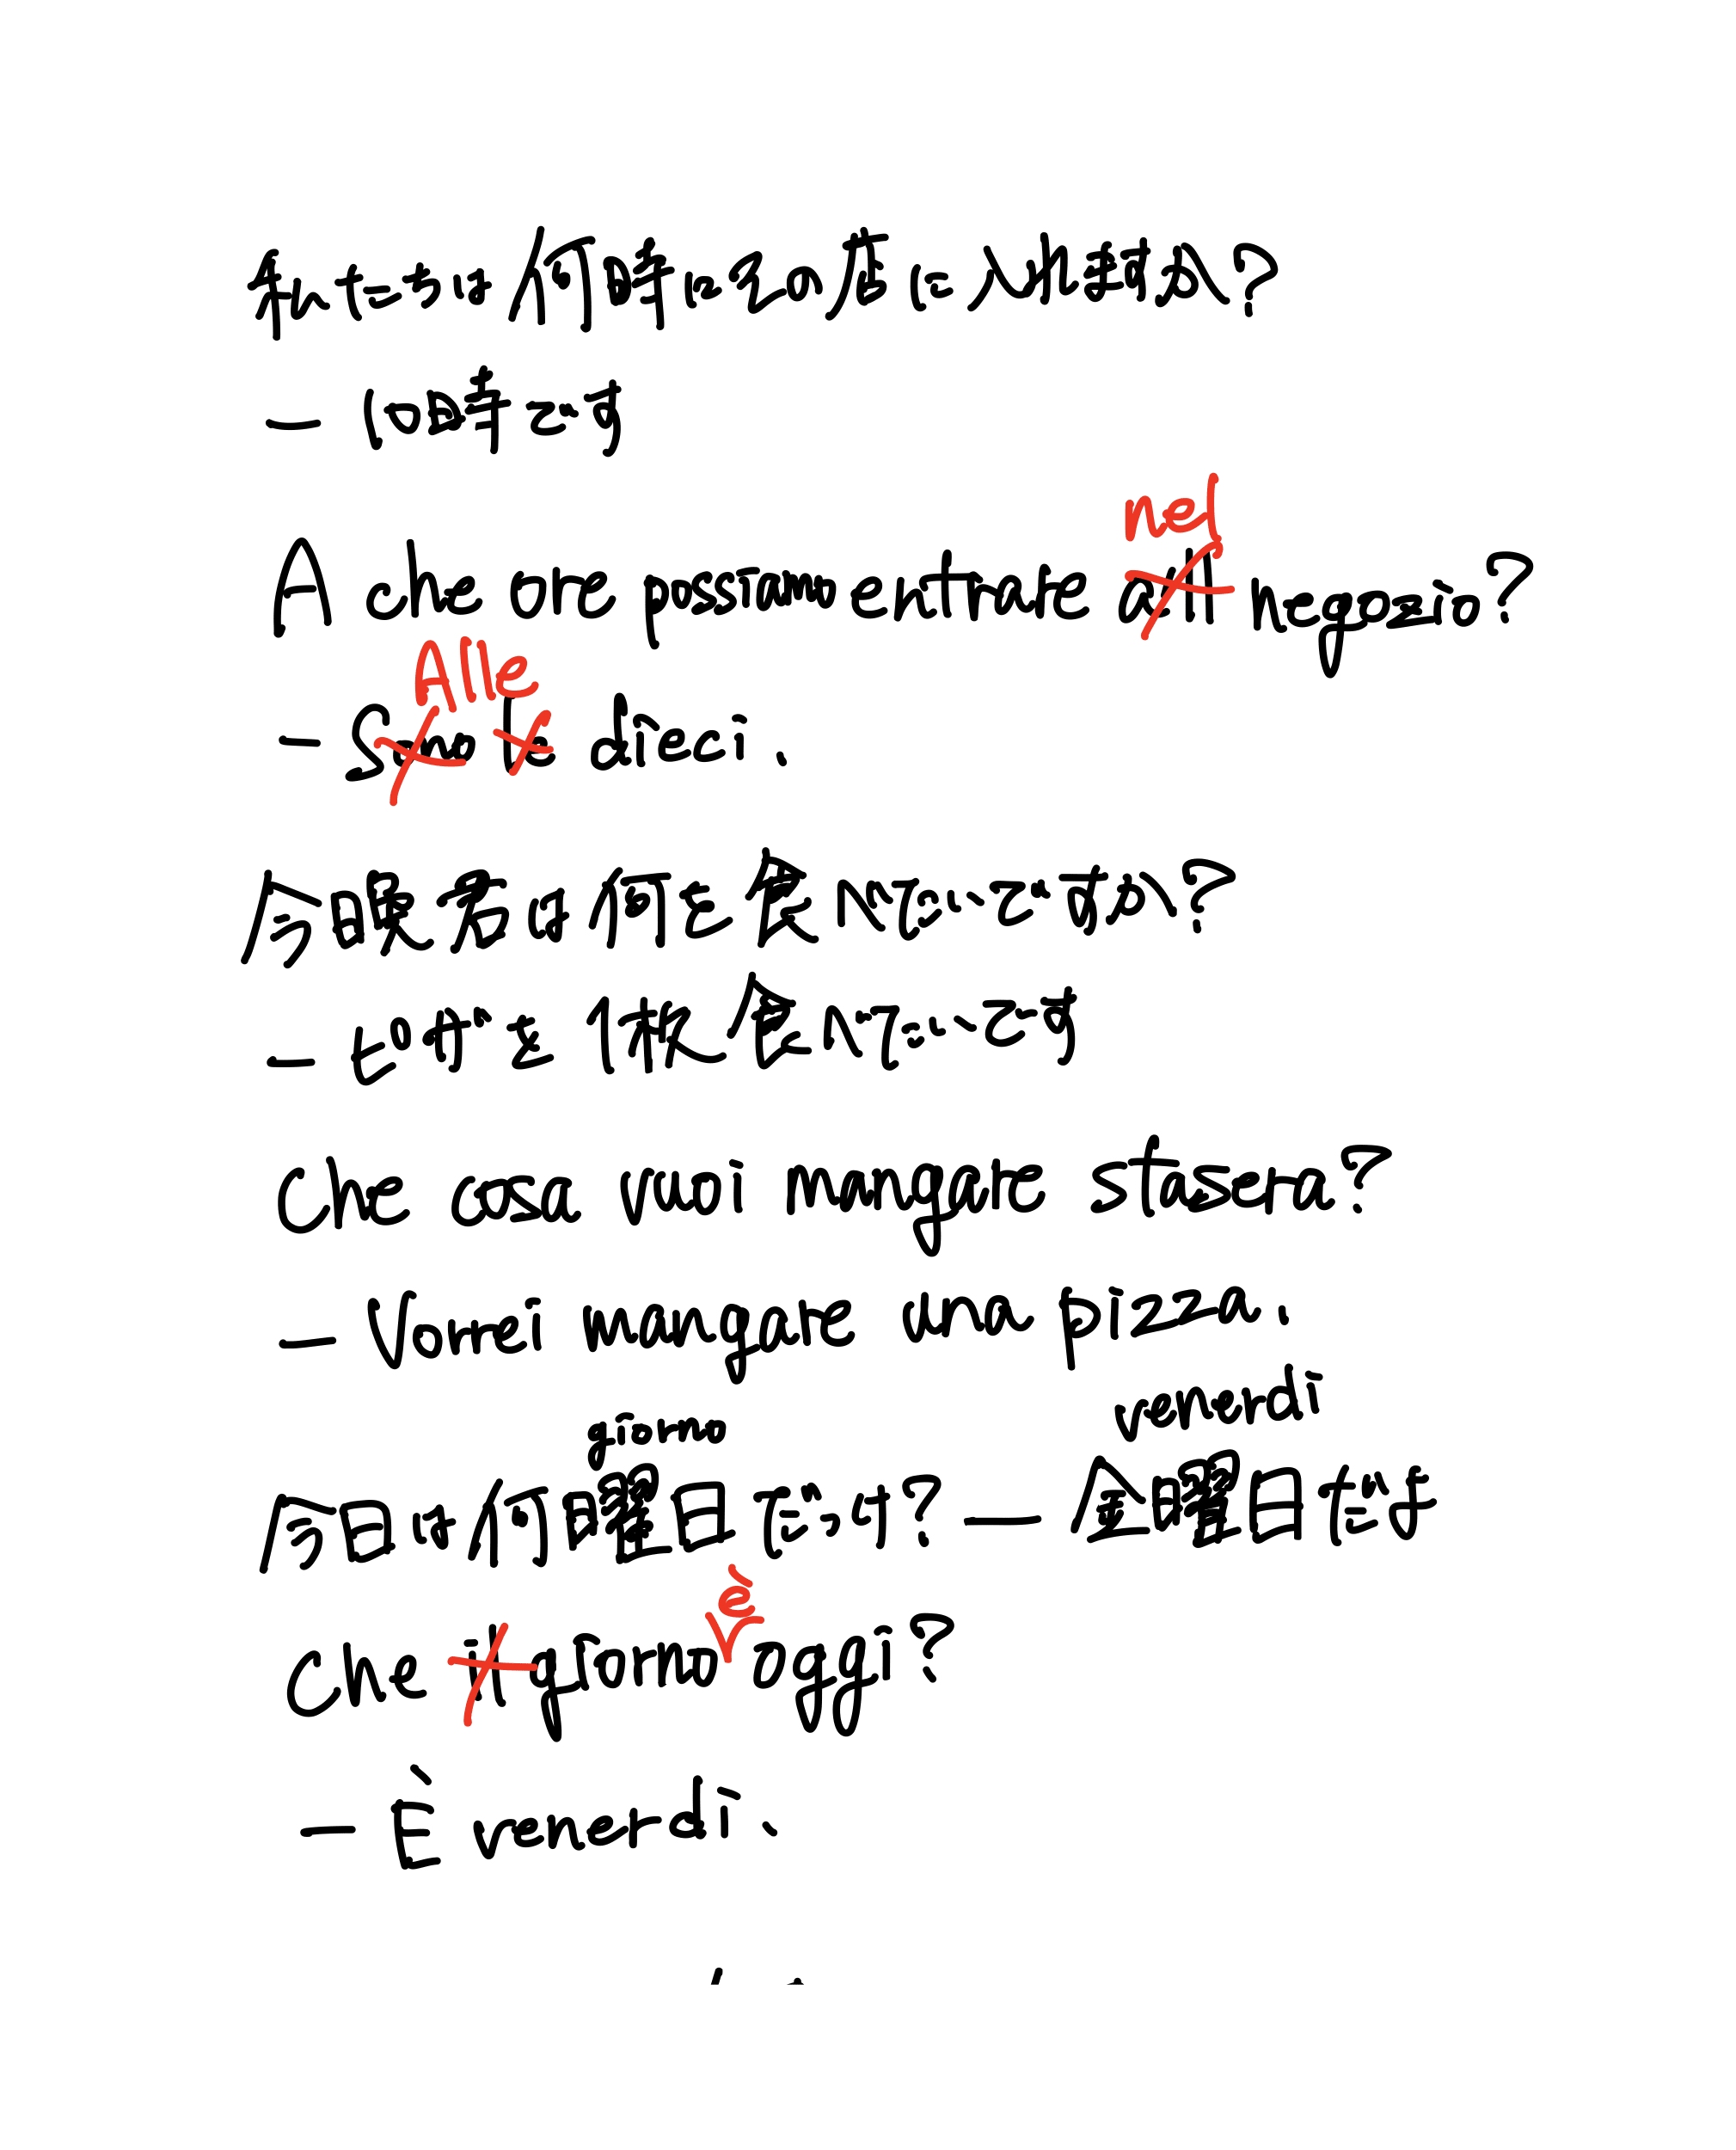 私たちは何時にこの店に入れますか?
- 10時です
nel
A che ore possiamo entrare all negozio?
Alle
- Sono le dieci.
今晩, 君は何を食べたいですか?
- ピザを1枚食べたいです
Che cosa vuoi mangiare stasera?
- Vorrei mangare una pizza.
giorno venerdì
今日は何曜日だっけ? - 金曜日だよ
è
Che il giorno oggi?
- È venerdì.